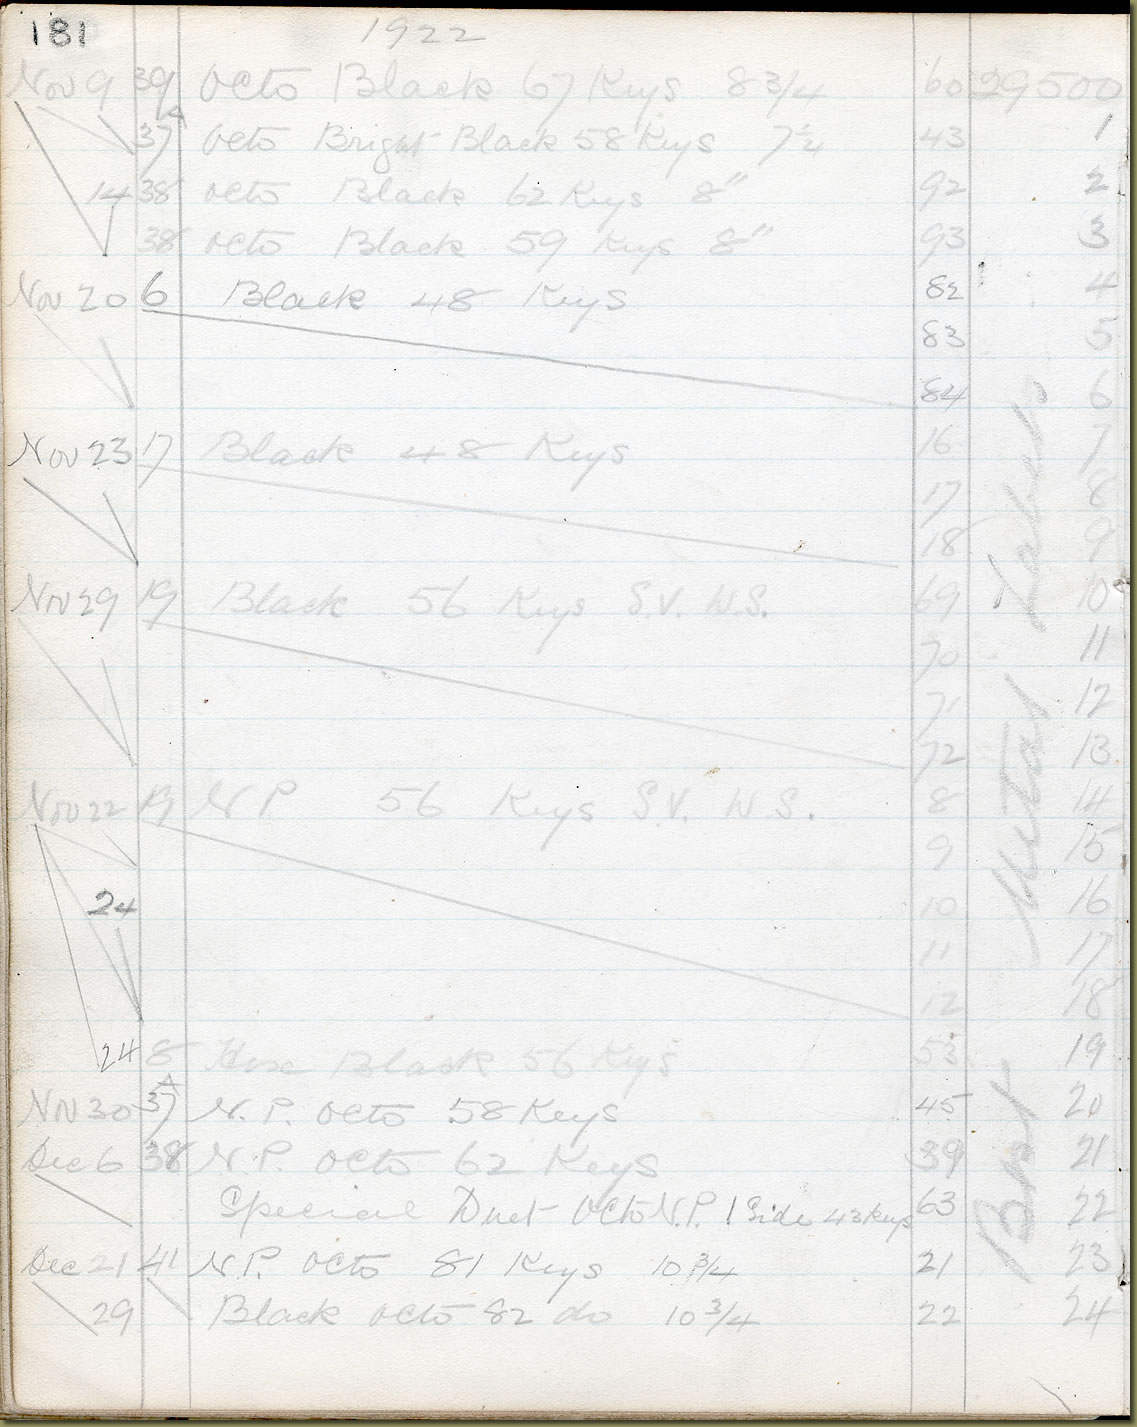 181 1922
Nov 9 39 Octo Black 67 Keys 8 3/4 60 29500
37A Octo Bright Black 58 Keys 7 1/4 43 1
14 38 Octo Black 62 Keys 8" 92 2
38 Octo Black 59 Keys 8" 93 3
Nov 20 6 Black 48 Keys 82 4
83 5
84 6
Nov 23 17 Black 48 Keys 16 7
17 8
18 9
Nov 29 19 Black 56 Keys S.V. W.S. 69 10
70 11
71 12
72 13
Nov 22 19 N.P. 56 Keys S.V. W.S. 8 14
9 15
24 10 16
11 17
12 18
24 8 Black 56 Keys 53 19
Nov 30 37A N.P. Octo 58 Keys 45 20
Dec 6 38 N.P. Octo 62 Keys 39 21
Special Duet Octo N.P. 1 Side 43 Keys 63 22
Dec 21 41 N.P. Octo 81 Keys 10 3/4 21 23
29 Black Octo 82 do 10 3/4 22 24
Best Metal Labels